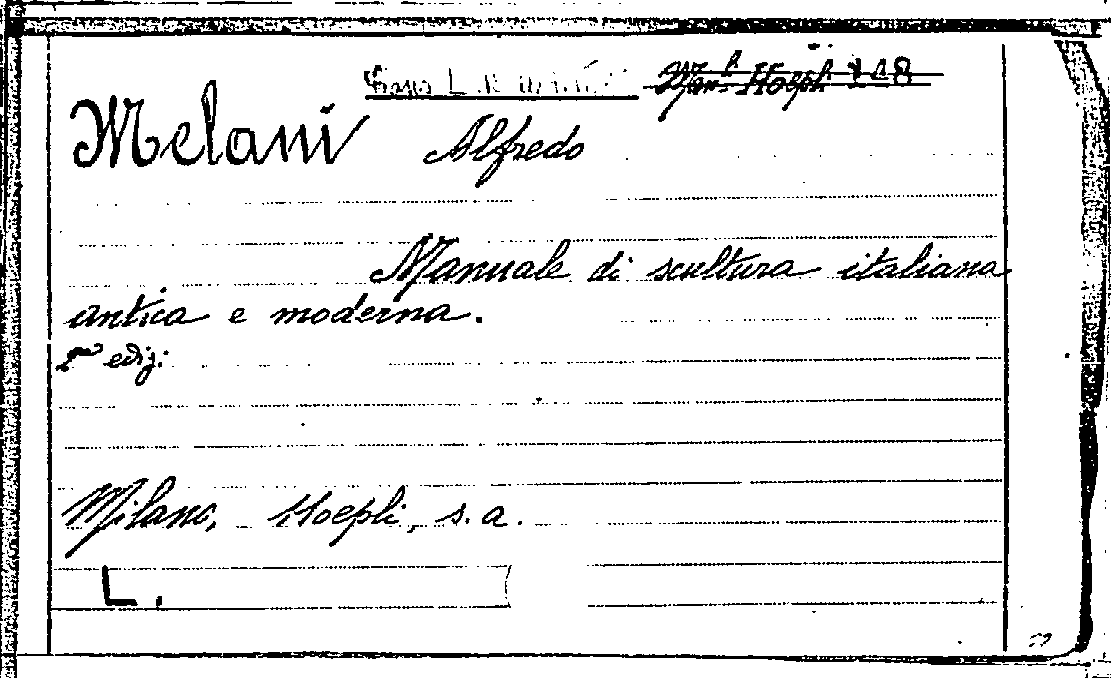 Man. Hoepli 148
Melani Alfredo
Manuale di scultura italiana
antica e moderna.
2ª ediz:
Milano, Hoepli, s. a.
L.